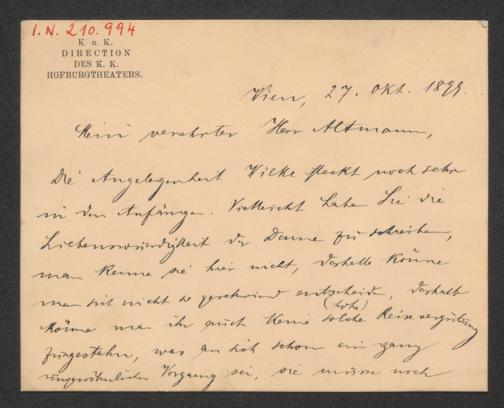 I.N. 210.994
K. u. K.
DIRECTION
DES K. K.
HOFBURGTHEATERS.
Wien, 27. Okt. 1899.
Mein verehrter Herr Altmann,
Die Angelegenheit Wilke steckt noch sehr
in den Anfängen. Vielleicht haben Sie die
Liebenswürdigkeit der Dame zu schreiben,
man kenne sie hier nicht, deshalb könne
man sich nicht so geschwind entscheiden, deshalb
könne man ihr auch keine solche (hohe) Reisevergütung
zugestehn, was an sich schon ein ganz
ungewöhnlicher Vorgang sei, sie müsse noch